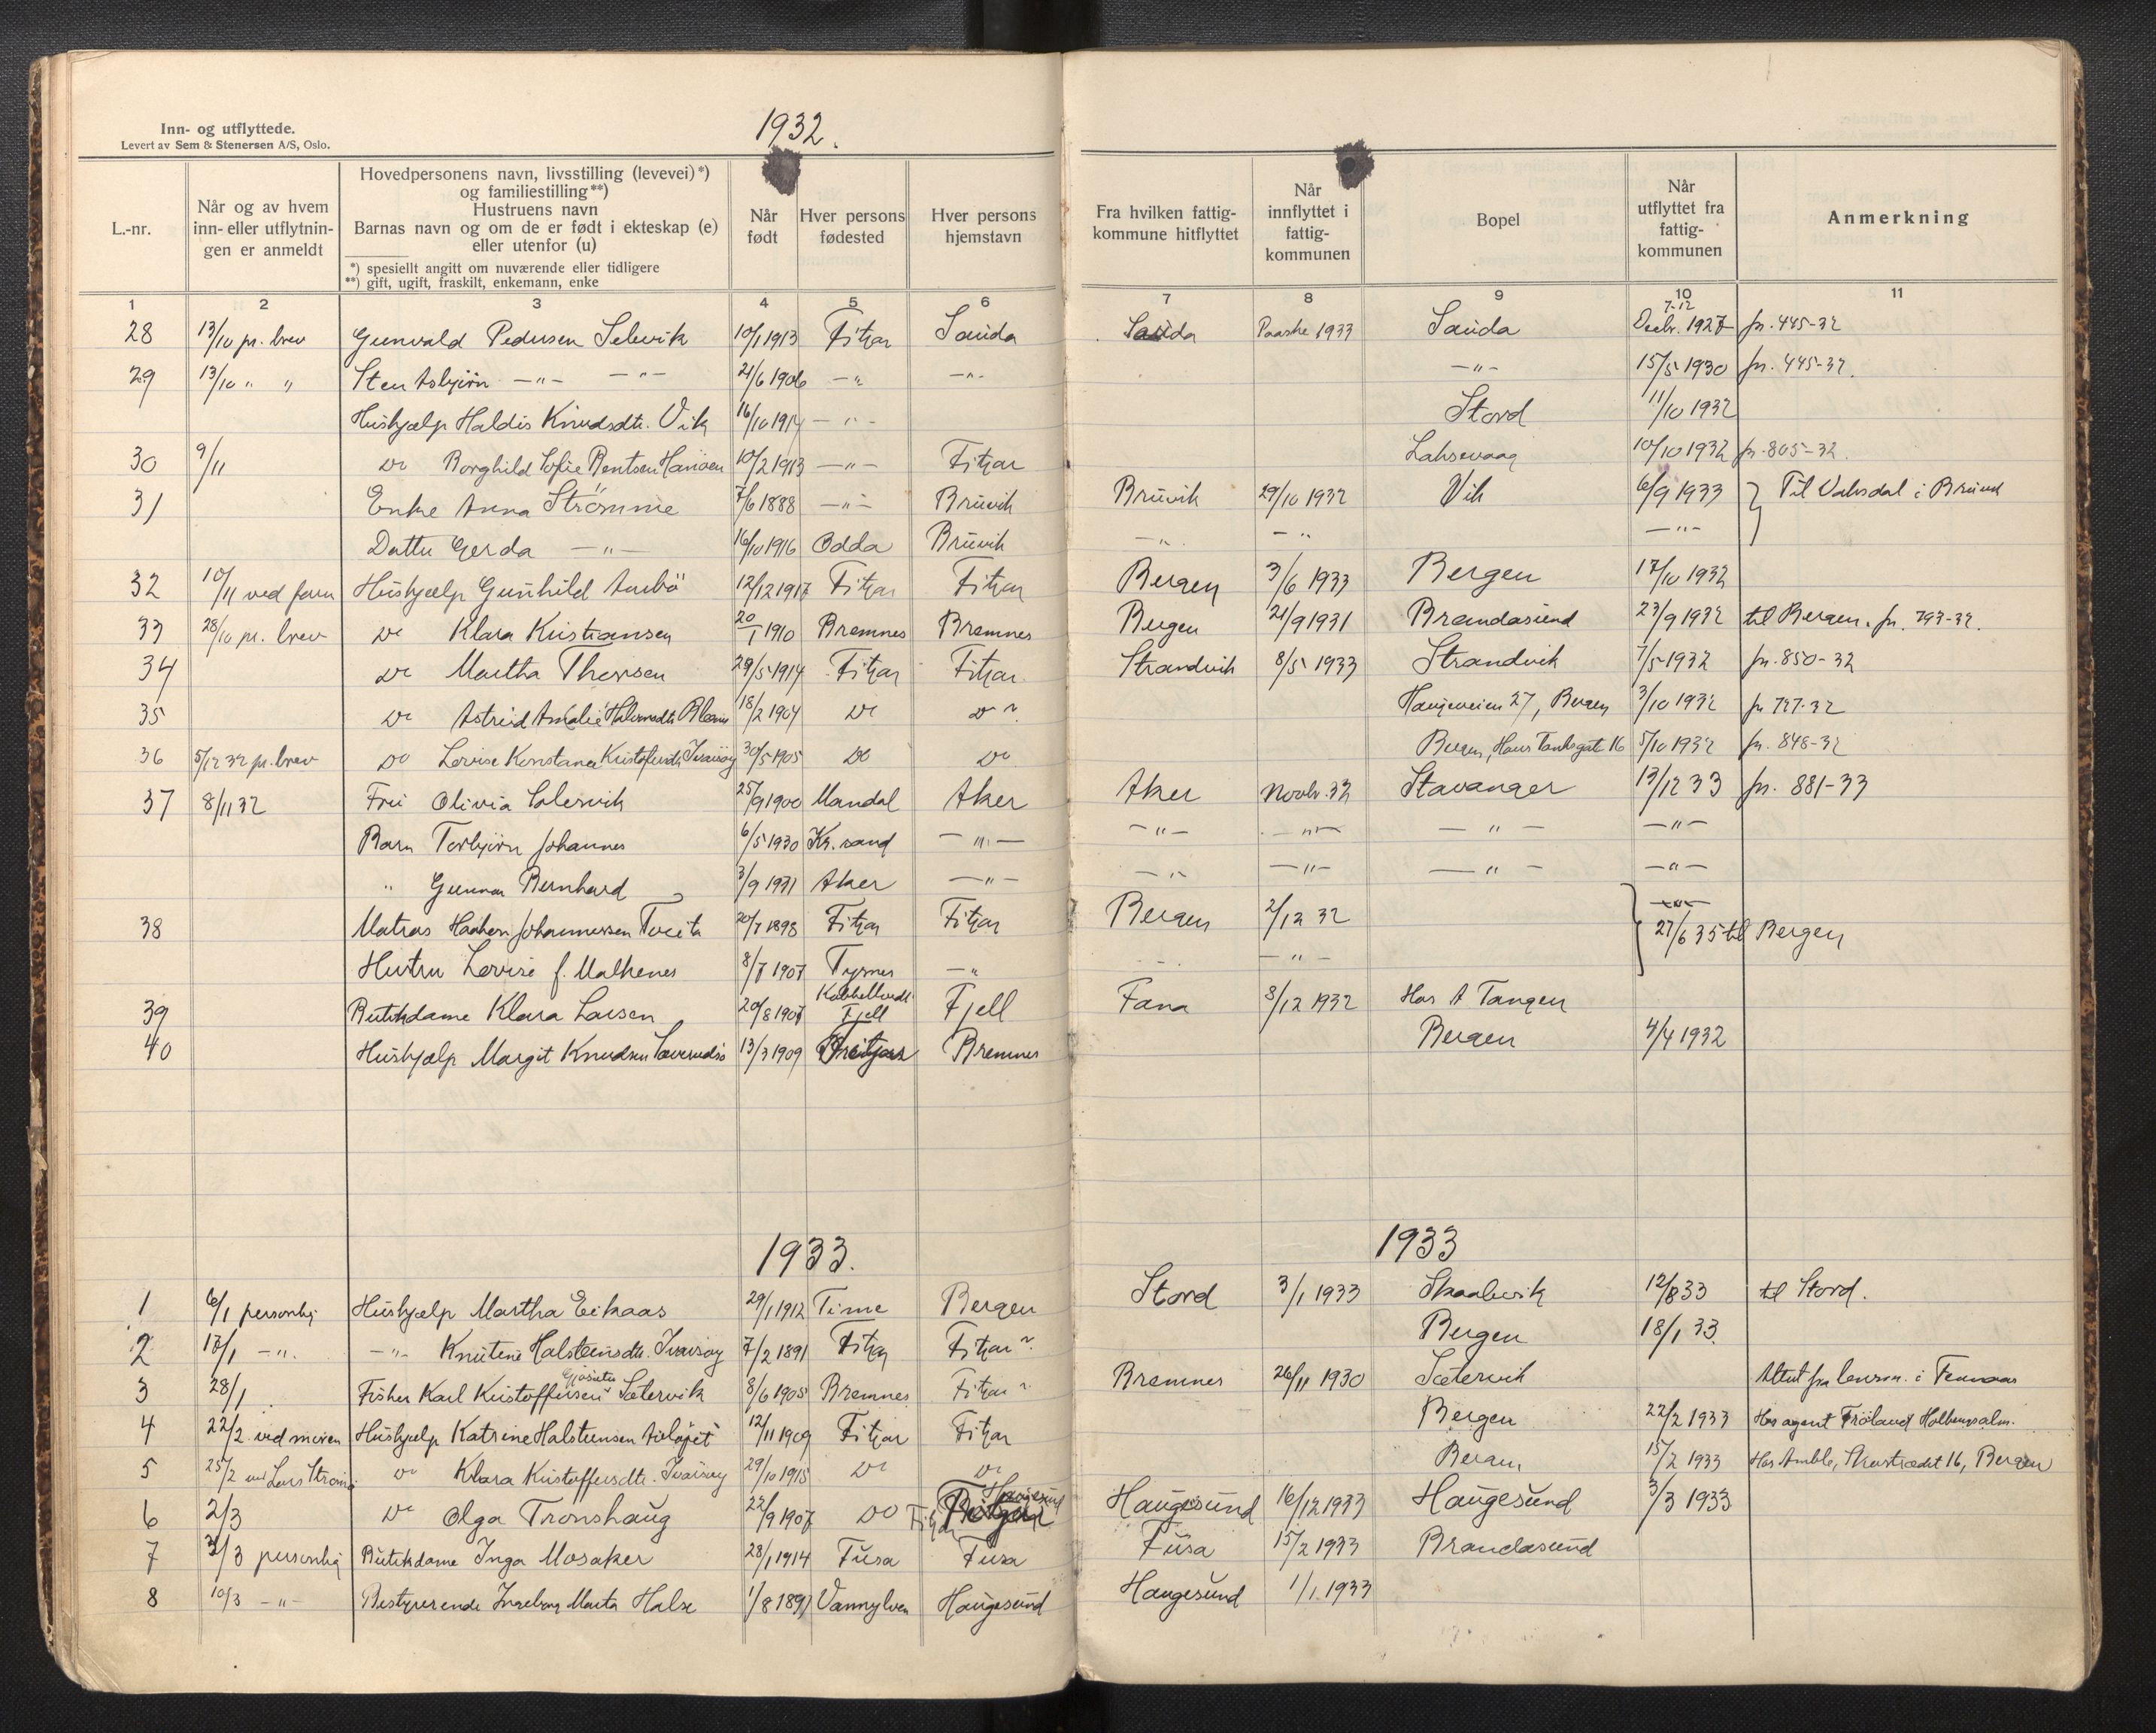 1932.
Inn- og utflyttede.
Levert av Sem & Stenersen A/S, Oslo.
L.-nr.
Når og av hvem inn- eller utflytnin- gen er anmeldt
Hovedpersonens navn, livsstilling (levevei)*) og familiestilling**)
Hustruens navn
Barnas navn og om de er født i ekteskap (e) eller utenfor (u)
*) spesiellt angitt om nuværende eller tidligere
**) gift, ugift, fraskilt, enkemann, enke
Når født
Hver persons fødested
Hver persons hjemstavn
Fra hvilken fattig- kommune hitflyttet
Når innflyttet i fattig- kommunen
Bopel
Når utflyttet fra fattig- kommunen
Anmerkning
1 2 3 4 5 6 7 8 9 10 11
28 13/10 pr. brev Gunvald Pedersen Selevik 10/1 1913 Fitjar Sauda Sauda Paaske 1933 Sauda 7-12 Decbr. 1927 jn. 445-32
29 13/10 " " Sten Asbjörn -"- -"- 21/6 1906 -"- -"- -"- 15/5 1930 jn. 445-32.
Hushjælp Haldis Knudsdtr. Vik 16/10 1914 -"- Stord 11/10 1932
30 9/11 Do Borghild Sofie Bentsen Hanöen 10/2 1913 -"- Fitjar Laksevaag 10/10 1932 jn. 805-32.
31 Enke Anna Strömme 7/6 1888 -"- Bruvik Bruvik 29/10 1932 Vik 6/9 1933 } Til Vaksdal i Bruvik
Datter Gerda -"- 16/10 1916 Odda Bruvik -"- -"- -"-
32 10/11 ved faren Hushjælp Gunhild Aarbö 12/12 1917 Fitjar Fitjar Bergen 3/6 1933 Bergen 17/10 1932
33 28/10 pr. brev Do Klara Kristiansen 20/1 1910 Bremnes Bremnes Bergen 21/9 1931 Brandasund 23/9 1932 til Bergen. jn. 793-32.
34 Do Martha Thorsen 29/5 1914 Fitjar Fitjar Strandvik 8/5 1933 Strandvik 7/5 1932 jn. 850-32
35 Do Astrid Amalie Halvorsdtr 18/2 1904 Do Do ? Haugeveien 27, Bergen 3/10 1932 jn 727-32
36 5/12 32 pr. brev Do Lovise Konstance Kristofersdtr Ivarsöy 30/5 1905 Do Do Bergen, Hans Tanksgate 16 5/10 1932 jn. 848-32
37 8/11 32 Fru Olivia Solesvik 25/9 1900 Mandal Aker Aker Novbr. 32 Stavanger 13/12 33 jn. 881-33
Barn Torbjörn Johannes 6/5 1930 Kr. sand -"- -"- -"- -"- -"-
" Gunnar Bernhard 3/9 1931 Aker -"- -"- -"- -"- -"-
38 Matros Haakon Johannessen Tveita 20/7 1898 Fitjar Fitjar Bergen 2/12 32 } 27/6 35 til Bergen
Hustru Lovise f. Malkenes 8/7 1907 Tysnes -"- -"-
39 Butikdame Klara Larsen 20/8 1907 Fjell Fjell Fana 8/12 1932 Hos A Tangen
40 Hushjælp Margit Knudsen 13/3 1909 Bremnes Bergen 4/4 1932
1933. 1933
1 6/1 personlig Hushjælp Martha Eikaas 29/1 1912 Time Bergen Stord 3/1 1933 Skaalevik 12/8 33 til Stord.
2 17/1 -"- -"- Knutene Halsteinsdtr. Ivarsöy 7/2 1891 Fitjar Fitjar ? Bergen 18/1 33.
3 28/1 Fisker Karl Kristoffersen Sætervik 8/6 1905 Bremnes Fitjar ? Bremnes 26/11 1930 Sætervik Attest fra lensm. i Finnaas
4 22/2 ved moren Hushjælp Katrine Halsteinsen 12/11 1909 Fitjar Fitjar Bergen 22/2 1933 Hos agent Fröland
5 25/2 ved Lars Ström Do Klara Kristoffersdtr. Ivarsöy 29/10 1915 Do Do Bergen 15/2 1933 Hos Amble, 16, Bergen
6 2/3 Do Olga Tronshaug 22/9 1907 Do Fitjar Haugesund Haugesund 16/12 1933 Haugesund 3/3 1933
7 3/3 personlig Butikdame Inga Mosaker 28/1 1914 Fusa Fusa Fusa 15/2 1933 Brandasund
8 10/3 -"- Bestyrerende Ingeborg Marta Halse 1/8 1891 Vannylven Haugesund Haugesund 1/1. 1933